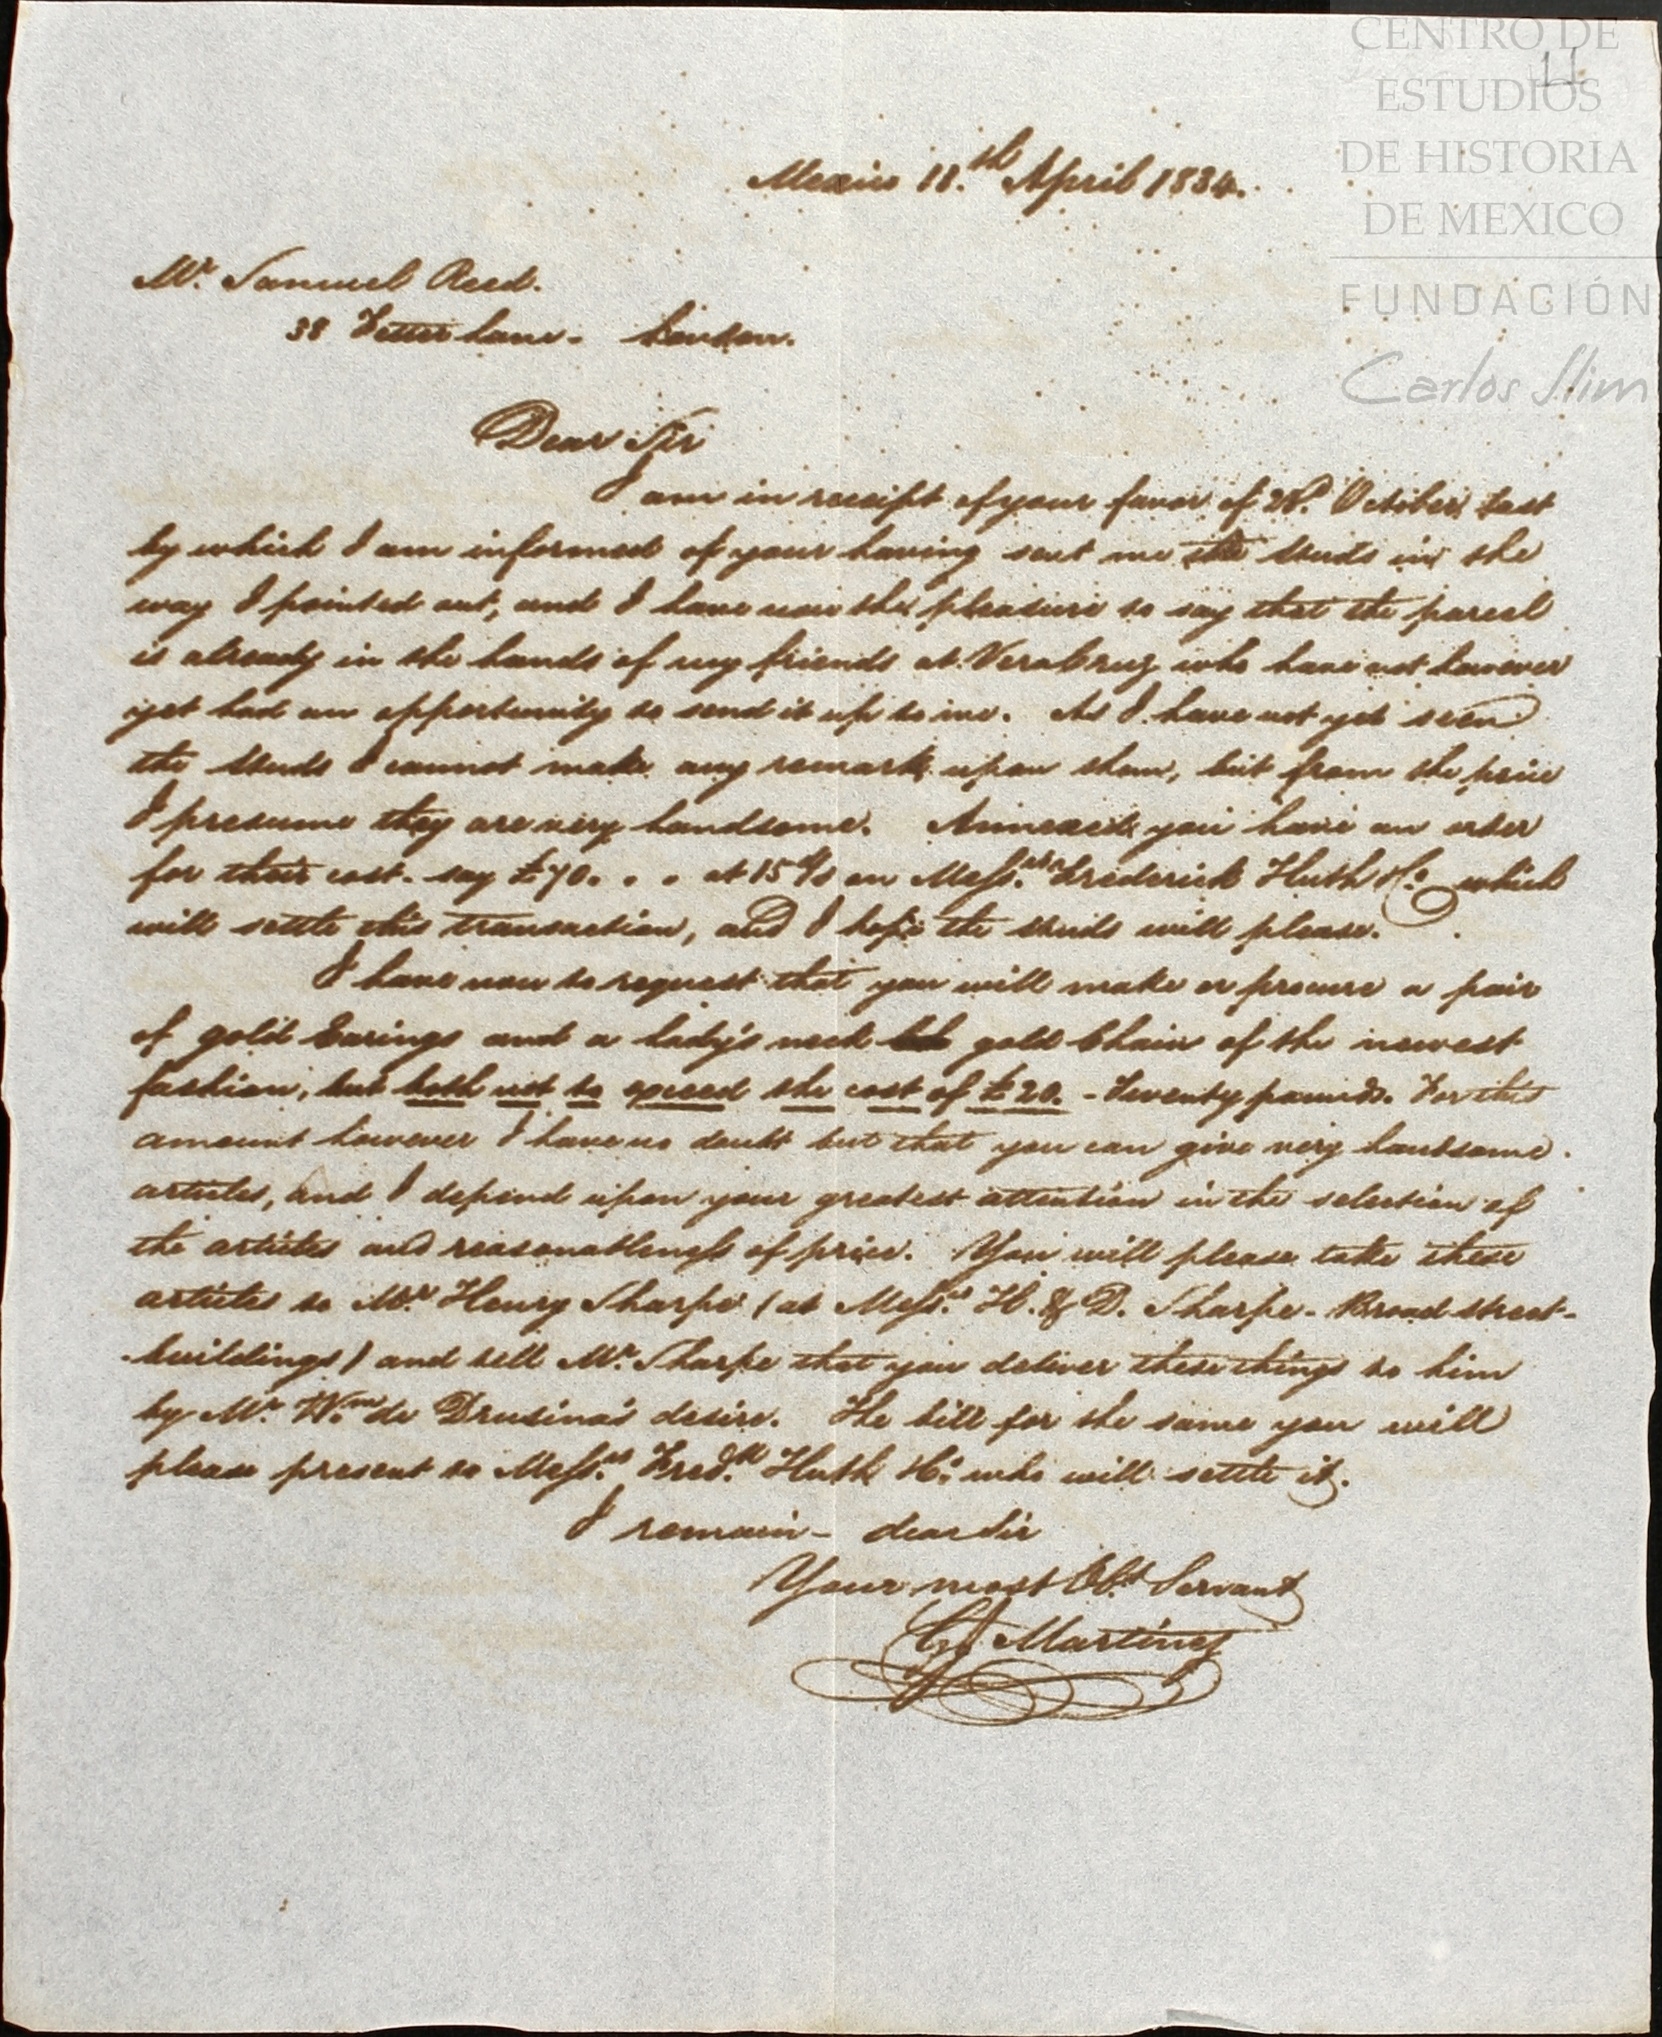 CENTRO DE
ESTUDIOS
DE HISTORIA
DE MEXICO
FUNDACIÓN
Carlos Slim
11
Mexico 11.th April 1834.
Mr. Samuel Reed.
38 Fetter lane - London.
Dear Sir
I am in receipt of your favor of October last
by which I am informed of your having sent me the Studs in the
way I pointed out, and I have now the pleasure to say that the parcel
is already in the hands of my friends at Verabruz who have not however
yet had an opportunity to send it up to me. As I have not yet seen
the Studs I cannot make any remark upon them, but from the price
I presume they are very handsome. Annexed you have an order
for their cost. say £70. . . at 15 d/s on Messrs. Frederick Huth & Co. which
will settle this transaction, and I hope the Studs will please.
I have now to request that you will make or procure a pair
of gold Earings and a lady's neck gold Chain of the newest
fashion, but both not to exceed the cost of £20. - Twenty pounds. For this
amount however I have no doubt but that you can give very handsome
articles, and I depend upon your greatest attention in the selection of
the articles and reasonableness of price. You will please take these
articles to Mr. Henry Sharpe (at Messrs. H. & D. Sharpe - Broad street-
buildings) and tell Mr. Sharpe that you deliver these things to him
by Mr. Wm. de Drusina's desire. The bill for the same you will
please present to Messrs. Fredk. Huth & Co. who will settle it.
I remain - dear Sir
Your most Obt. Servant
Martinez